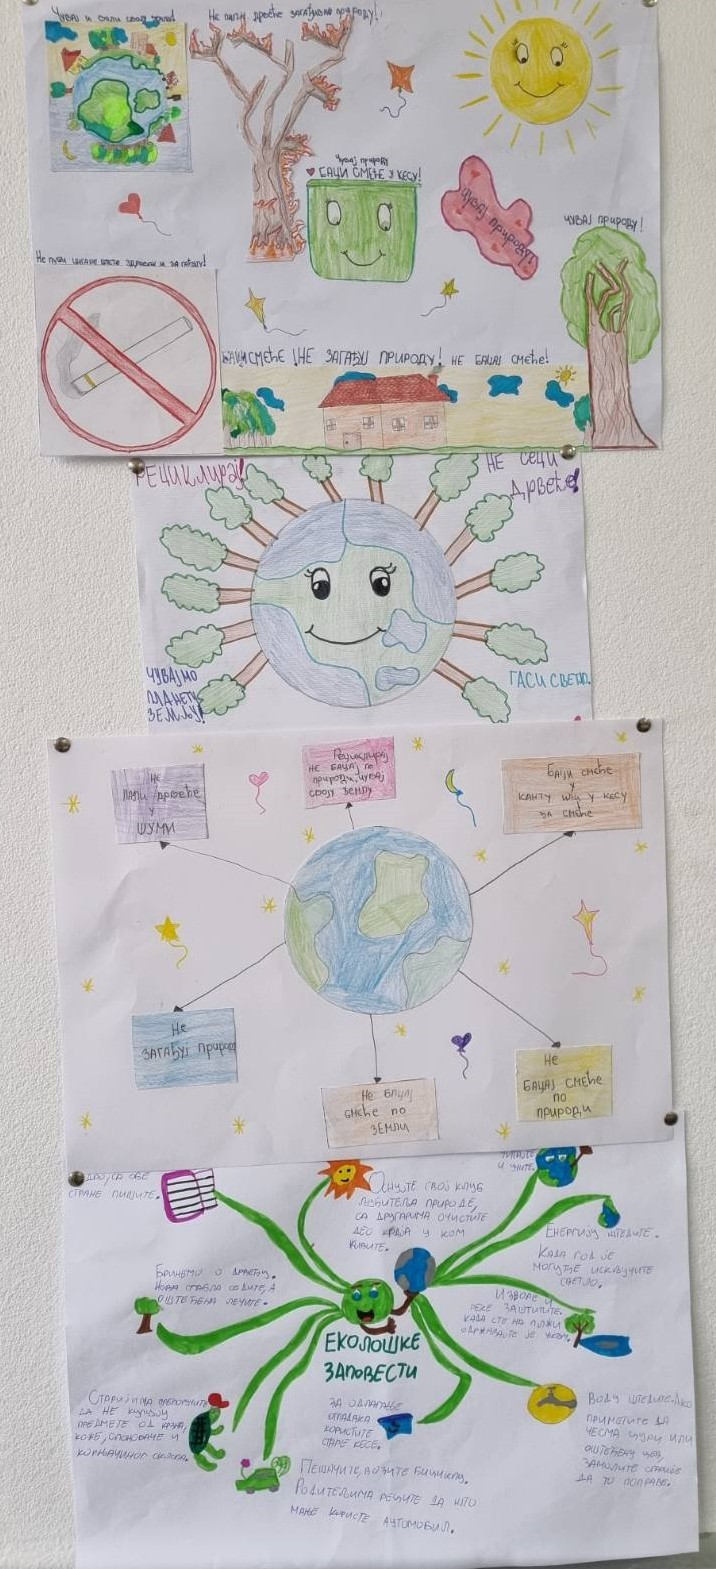 Чувај и
Не пали дрвеће загађујеш природу!
Чувај природу
БАЦИ СМЕЋЕ У КЕСУ!
ЧУВАЈ ПРИРОДУ!
ЧУВАЈ ПРИРОДУ!
БАЦИ СМЕЋЕ! НЕ ЗАГАЂУЈ ПРИРОДУ! НЕ БАЦАЈ СМЕЋЕ!
РЕЦИКЛИРАЈ!
НЕ СЕЦИ
ДРВЕЋЕ!
ЧУВАЈМО
ПЛАНЕТУ
ЗЕМЉУ!
ГАСИ СВЕТЛО.
Не
ПАЛИ ДРВЕЋЕ
У
ШУМИ
Рециклирај
НЕ БАЦАЈ ПО
ПРИРОДИ, ЧУВАЈ
СВОЈУ ЗЕМЉУ
БАЦИ СМЕЋЕ
У
КАНТУ ИЛИ У КЕСУ
ЗА СМЕЋЕ
Не
ЗАГАЂУЈ ПРИРОДУ
Не БАЦАЈ
СМЕЋЕ ПО
ЗЕМЉИ
Не
БАЦАЈ СМЕЋЕ
ПО
ПРИРОДИ
СА ОБЕ
СТРАНЕ ПИШИТЕ.
СВОЈ КЛУБ
ЉУБИТЕЉА ПРИРОДЕ,
СА ДРУГАРИМА ОЧИСТИТЕ
ДЕО КРАЈА У КОМ
ЖИВИТЕ.
И УЧИТЕ.
ЕНЕРГИЈУ ШТЕДИТЕ.
КАДА ГОД ЈЕ
МОГУЋЕ ИСКЉУЧИТЕ
СВЕТЛО.
БРИНЕМО О ДРВЕЋУ.
НОВА СТАБЛА САДИТЕ, А
ОШТЕЋЕНА ЛЕЧИТЕ.
ИЗВОРЕ И
РЕКЕ ЗАШТИТИТЕ.
КАДА СТЕ НА ПЛАЖИ
ОДРЖАВАЈТЕ ЈЕ
ЕКОЛОШКЕ
ЗАПОВЕСТИ
СТАРИЈИМА ПРЕПОРУЧИТЕ
ДА НЕ КУПУЈУ
ПРЕДМЕТЕ ОД КРЗНА,
КОЖЕ, СЛОНОВАЧЕ И
КОРЊАЧИНОГ ОКЛОПА.
ЗА ОДЛАГАЊЕ
ОТПАДАКА
КОРИСТИТЕ
СТАРЕ КЕСЕ.
ВОДУ ШТЕДИТЕ. АКО
ПРИМЕТИТЕ ДА
ЧЕСМА ЦУРИ ИЛИ
ОШТЕЋЕНУ ЦЕВ,
ЗАМОЛИТЕ СТАРИЈЕ
ДА ТО ПОПРАВЕ.
ПЕШАЧИТЕ, ВОЗИТЕ БИЦИКЛУ.
РОДИТЕЉИМА РЕЦИТЕ ДА ШТО
МАЊЕ КОРИСТЕ АУТОМОБИЛ.